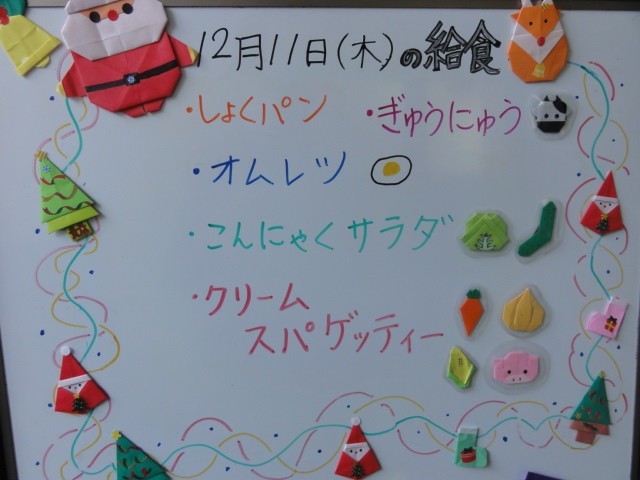 12月11日(木)の給食
・しょくパン ・ぎゅうにゅう
・オムレツ
・こんにゃくサラダ
・クリーム
スパゲッティー